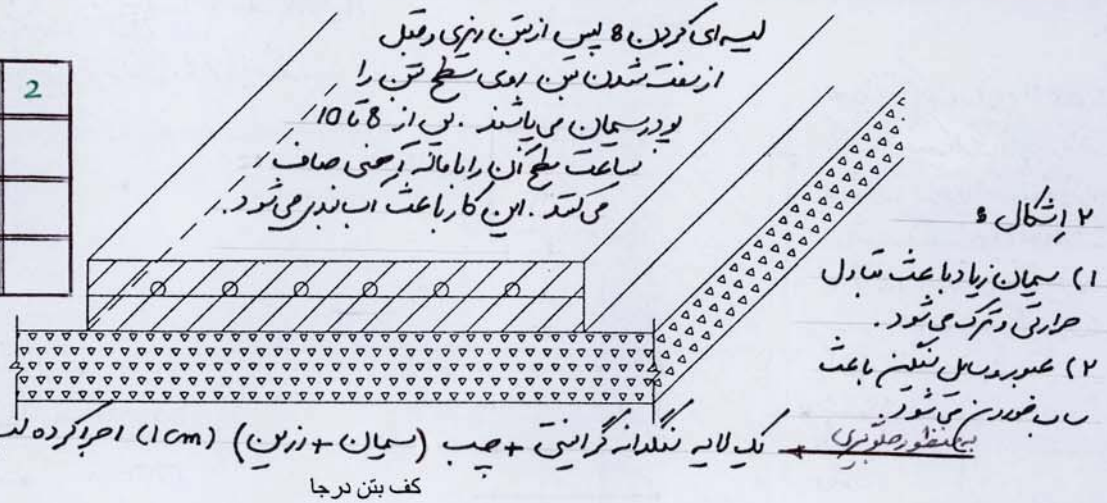 2
لیسه‌ای کردن : پس از بتن ریزی و قبل
از سفت شدن بتن روی سطح بتن را
پودر سیمان می‌پاشند . پس از 8 تا 10
ساعت سطح آن را با ماله آهنی صاف
می‌کنند . این کار باعث آب بندی می‌شود .
۲ اشکال :
۱) سیمان زیاد باعث تبادل
حرارتی و ترک می‌شود .
۲) عبور وسایل سنگین باعث
ساب خوردن می‌شود .
به منظور جلوگیری ← یک لایه سنگدانه گرانیتی + چسب (سیمان + رزین) (1 cm) اجرا کرده اند
کف بتن درجا